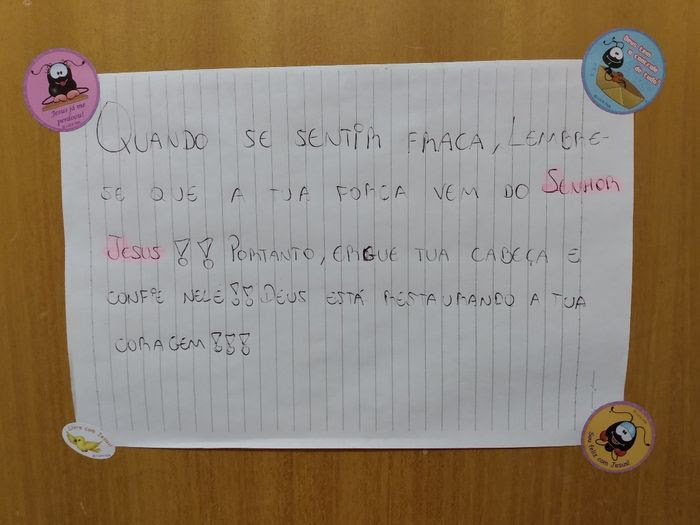 Jesus já me perdoou!
Deus tem o controle de tudo!
QUANDO SE SENTIR FRACA, LEMBRE-
SE QUE A TUA FORÇA VEM DO SENHOR
JESUS!! PORTANTO, ERGUE TUA CABEÇA E
CONFIE NELE!! DEUS ESTÁ RESTAURANDO A TUA
CORAGEM!!!
Livre com Jesus!
Sou feliz com Jesus!